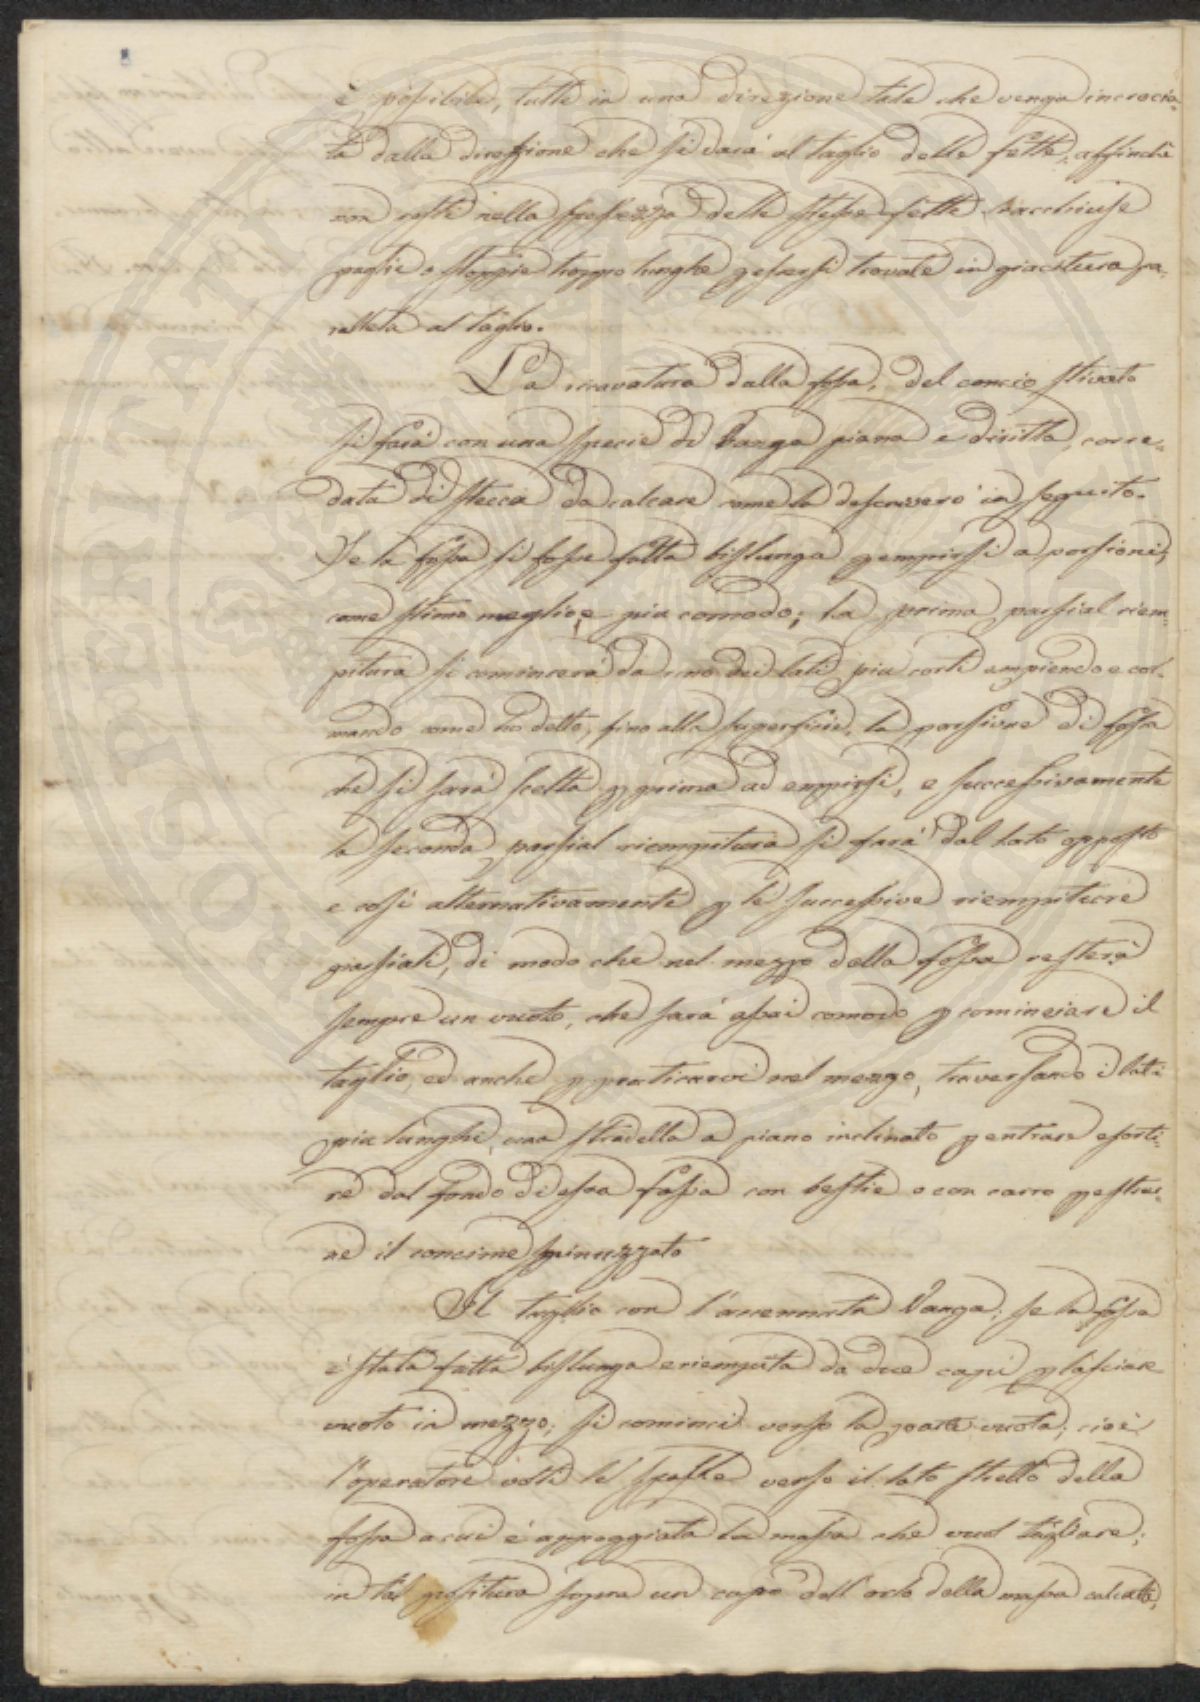 è possibile, tutte in una direzione tale che venga incrocia-
ta dalla direzione che si darà al taglio delle fette, affinchè
non resti nella spessezza delle stesse fette racchiuse
paglie o stoppie troppo lunghe p essersi trovate in giacitura pa-
ralella al taglio.
La scavatura dalla fossa, del concio stivato
si farà con una specie di Vanga piana e diritta, corre-
data di stecca da calcare come la descriverò in seguito.
Se la fossa si fosse fatta bislunga p empirsi a porzioni,
come stimo meglio, e più comodo; la prima parzial riem-
pitura si comincerà da uno dei lati più corti empiendo e col-
mando come ho detto, fino alla superficie, la porzione di fossa
che si sarà scelta p prima ad empirsi, e successivamente
la seconda parzial riempitura si farà dal lato opposto
e così alternativamente p le successive riempiture
parziali, di modo che nel mezzo della fossa resterà
sempre un vuoto, che sarà assai comodo p cominciare il
taglio, ed anche p praticarvi nel mezzo, traversando i lati
più lunghi, una stradella a piano inclinato p entrare e sorti-
re dal fondo di essa fossa con bestie o con carro p estrar-
ne il concime sminuzzato
Il taglio con l'accennata Vanga; se la fossa
è stata fatta bislunga e riempita da due capi p lasciare
vuoto in mezzo; si cominci verso la parte vuota; cioè
l'operatore volti le spalle verso il lato stretto della
fossa a cui è appoggiata la massa che vuol tagliare;
in tal positura sopra un capo dell'orlo della massa calcata,